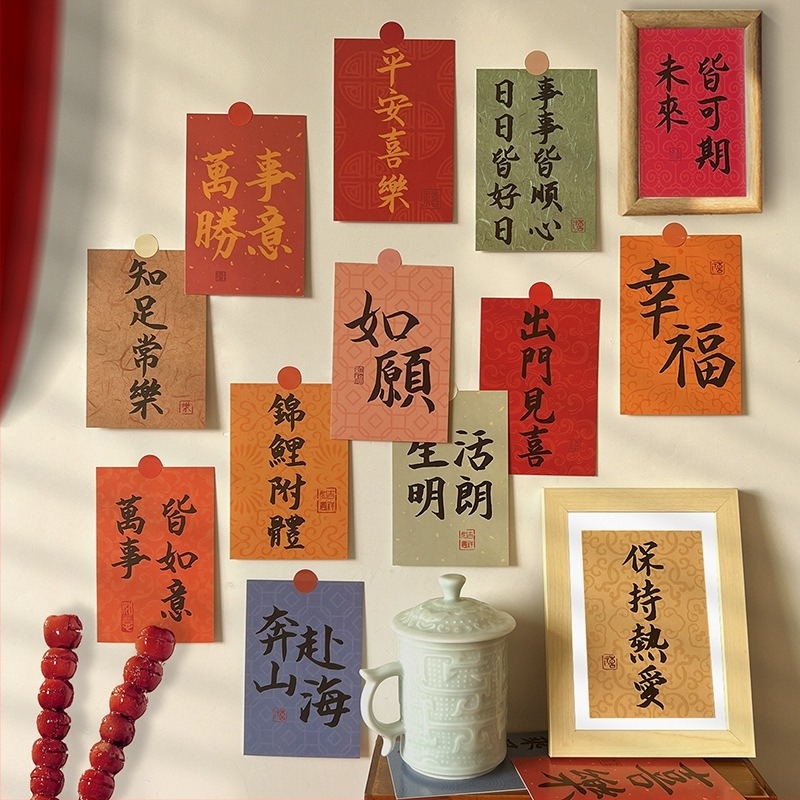 平安喜樂
日日皆好日
事事皆順心
未來
皆可期
萬事
勝意
知足常樂
如願
出門見喜
幸福
錦鯉附體
生活
明朗
萬事
皆如意
奔赴
山海
保持熱愛
喜樂